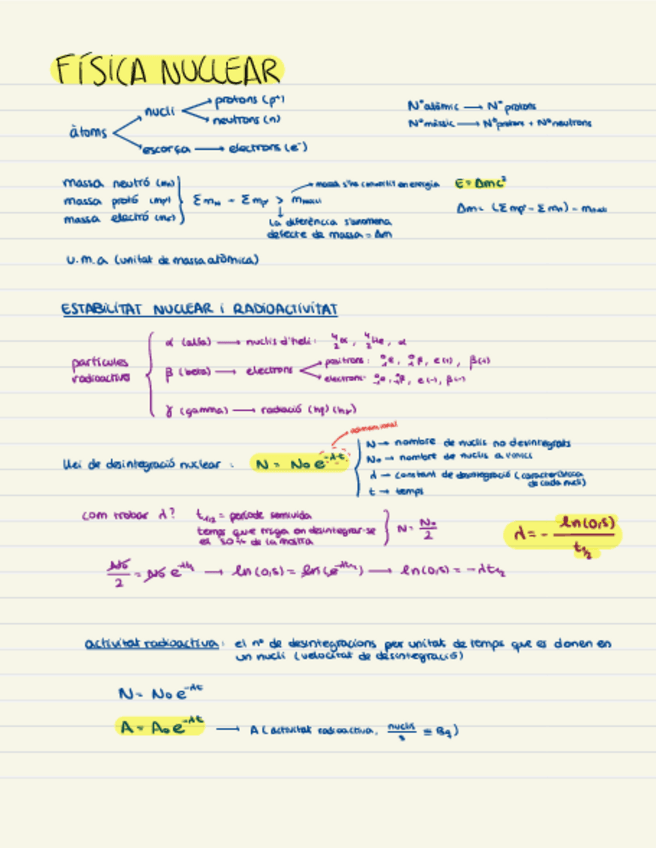 FÍSICA NUCLEAR
àtoms
nucli → protons (p⁺)
neutrons (n)
escorça → electrons (e⁻)
Nº atòmic → Nº protons
Nº màssic → Nº protons + Nº neutrons
massa neutró (mn)
massa protó (mp)
massa electró (me)
massa s'ha convertit en energia
E = Δmc²
La diferència s'anomena
defecte de massa = Δm
u.m.a (unitat de massa atòmica)
ESTABILITAT NUCLEAR i RADIOACTIVITAT
partícules
radioactiva
α (alfa) → nuclis d'heli: ⁴₂α, ⁴₂He, α
β (beta) → electrons
positrons:
electrons:
γ (gamma) → radiació (hγ) (hν)
adimensional
Llei de desintegració nuclear: N = N₀e^-λt
N → nombre de nuclis no desintegrats
N₀ → nombre de nuclis
λ → constant de desintegració (característica
de cada nucli)
t → temps
com trobar λ?
t₁/₂ = període semivida
temps que triga en desintegrar-se
el 50% de la mostra
N = N₀/2
λ = - ln(0,5)/t₁/₂
N₀/2 = N₀ e^-λt₁/₂ → ln(0,5) = ln(e^-λt₁/₂) → ln(0,5) = -λt₁/₂
activitat radioactiva: el nº de desintegracions per unitat de temps que es donen en
un nucli (velocitat de desintegració)
N = N₀e^-λt
A = A₀e^-λt → A (activitat radioactiva, nuclis/s ≡ Bq)